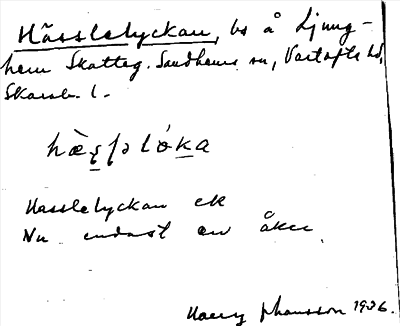 Hässlelyckan, bs å Ljung-
hem Skatteg. Sandhems sn, Vartofta hd,
Skarab. l.
Hasslelyckan ek
Nu endast en åker.
Harry Johansson 1936.